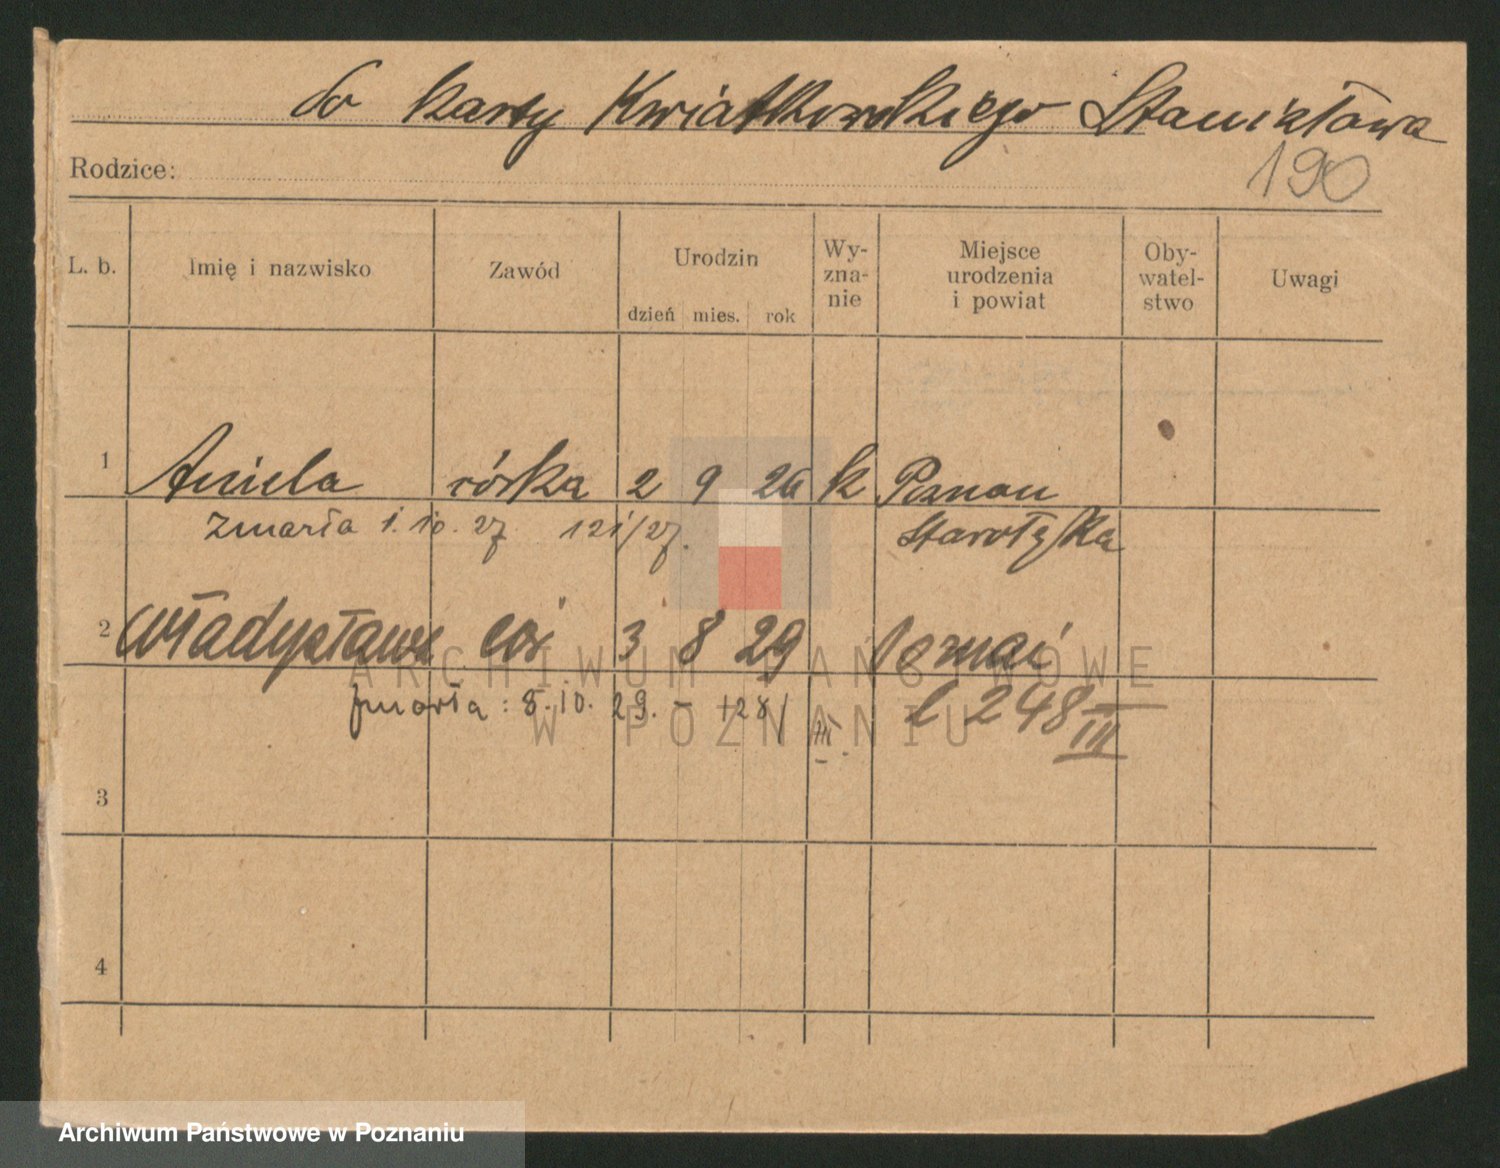 do karty Kwiatkowskiego Stanisława
Rodzice:
190
L. b. Imię i nazwisko Zawód Urodzin dzień mies. rok Wy-zna-nie Miejsce urodzenia i powiat Oby-watel-stwo Uwagi
1 Aniela córka 2 9 26 k Poznań
zmarła 1. 10. 27 121/27.
Starołęka
2 Władysława 3 8 29
zmarła: 5. 10. 29. - 128/III
l 248 III
3
4
ARCHIWUM PAŃSTWOWE
W POZNANIU
Archiwum Państwowe w Poznaniu